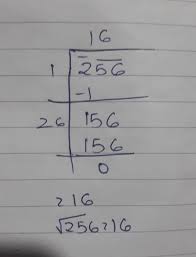 16
1 256
-1
26 156
156
0
≥16
√256≥16